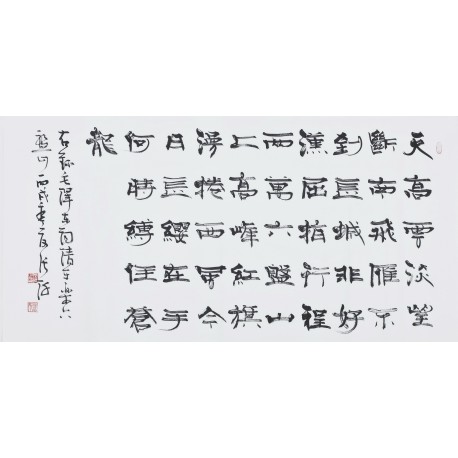 天高雲淡望
斷南飛雁不
到長城非好
漢屈指行程
兩萬六盤山
上高峰紅旗
漫捲西風今
日長纓在手
何時縛住蒼
龍
右錄毛澤東詞清平樂六
盤山丙戌年夏